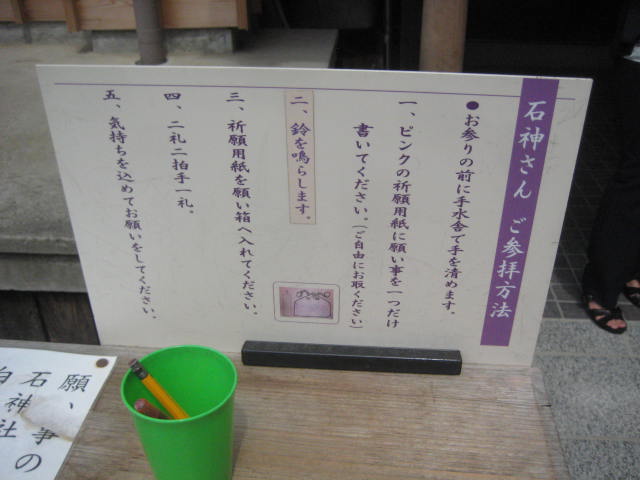 石神さん ご参拝方法
●お参りの前に手水舎で手を清めます。
一、ピンクの祈願用紙に願い事を一つだけ
書いてください。(ご自由にお取ください)
二、鈴を鳴らします。
三、祈願用紙を願い箱へ入れてください。
四、二礼二拍手一礼。
五、気持ちを込めてお願いをしてください。
願い事の
石神
白 社